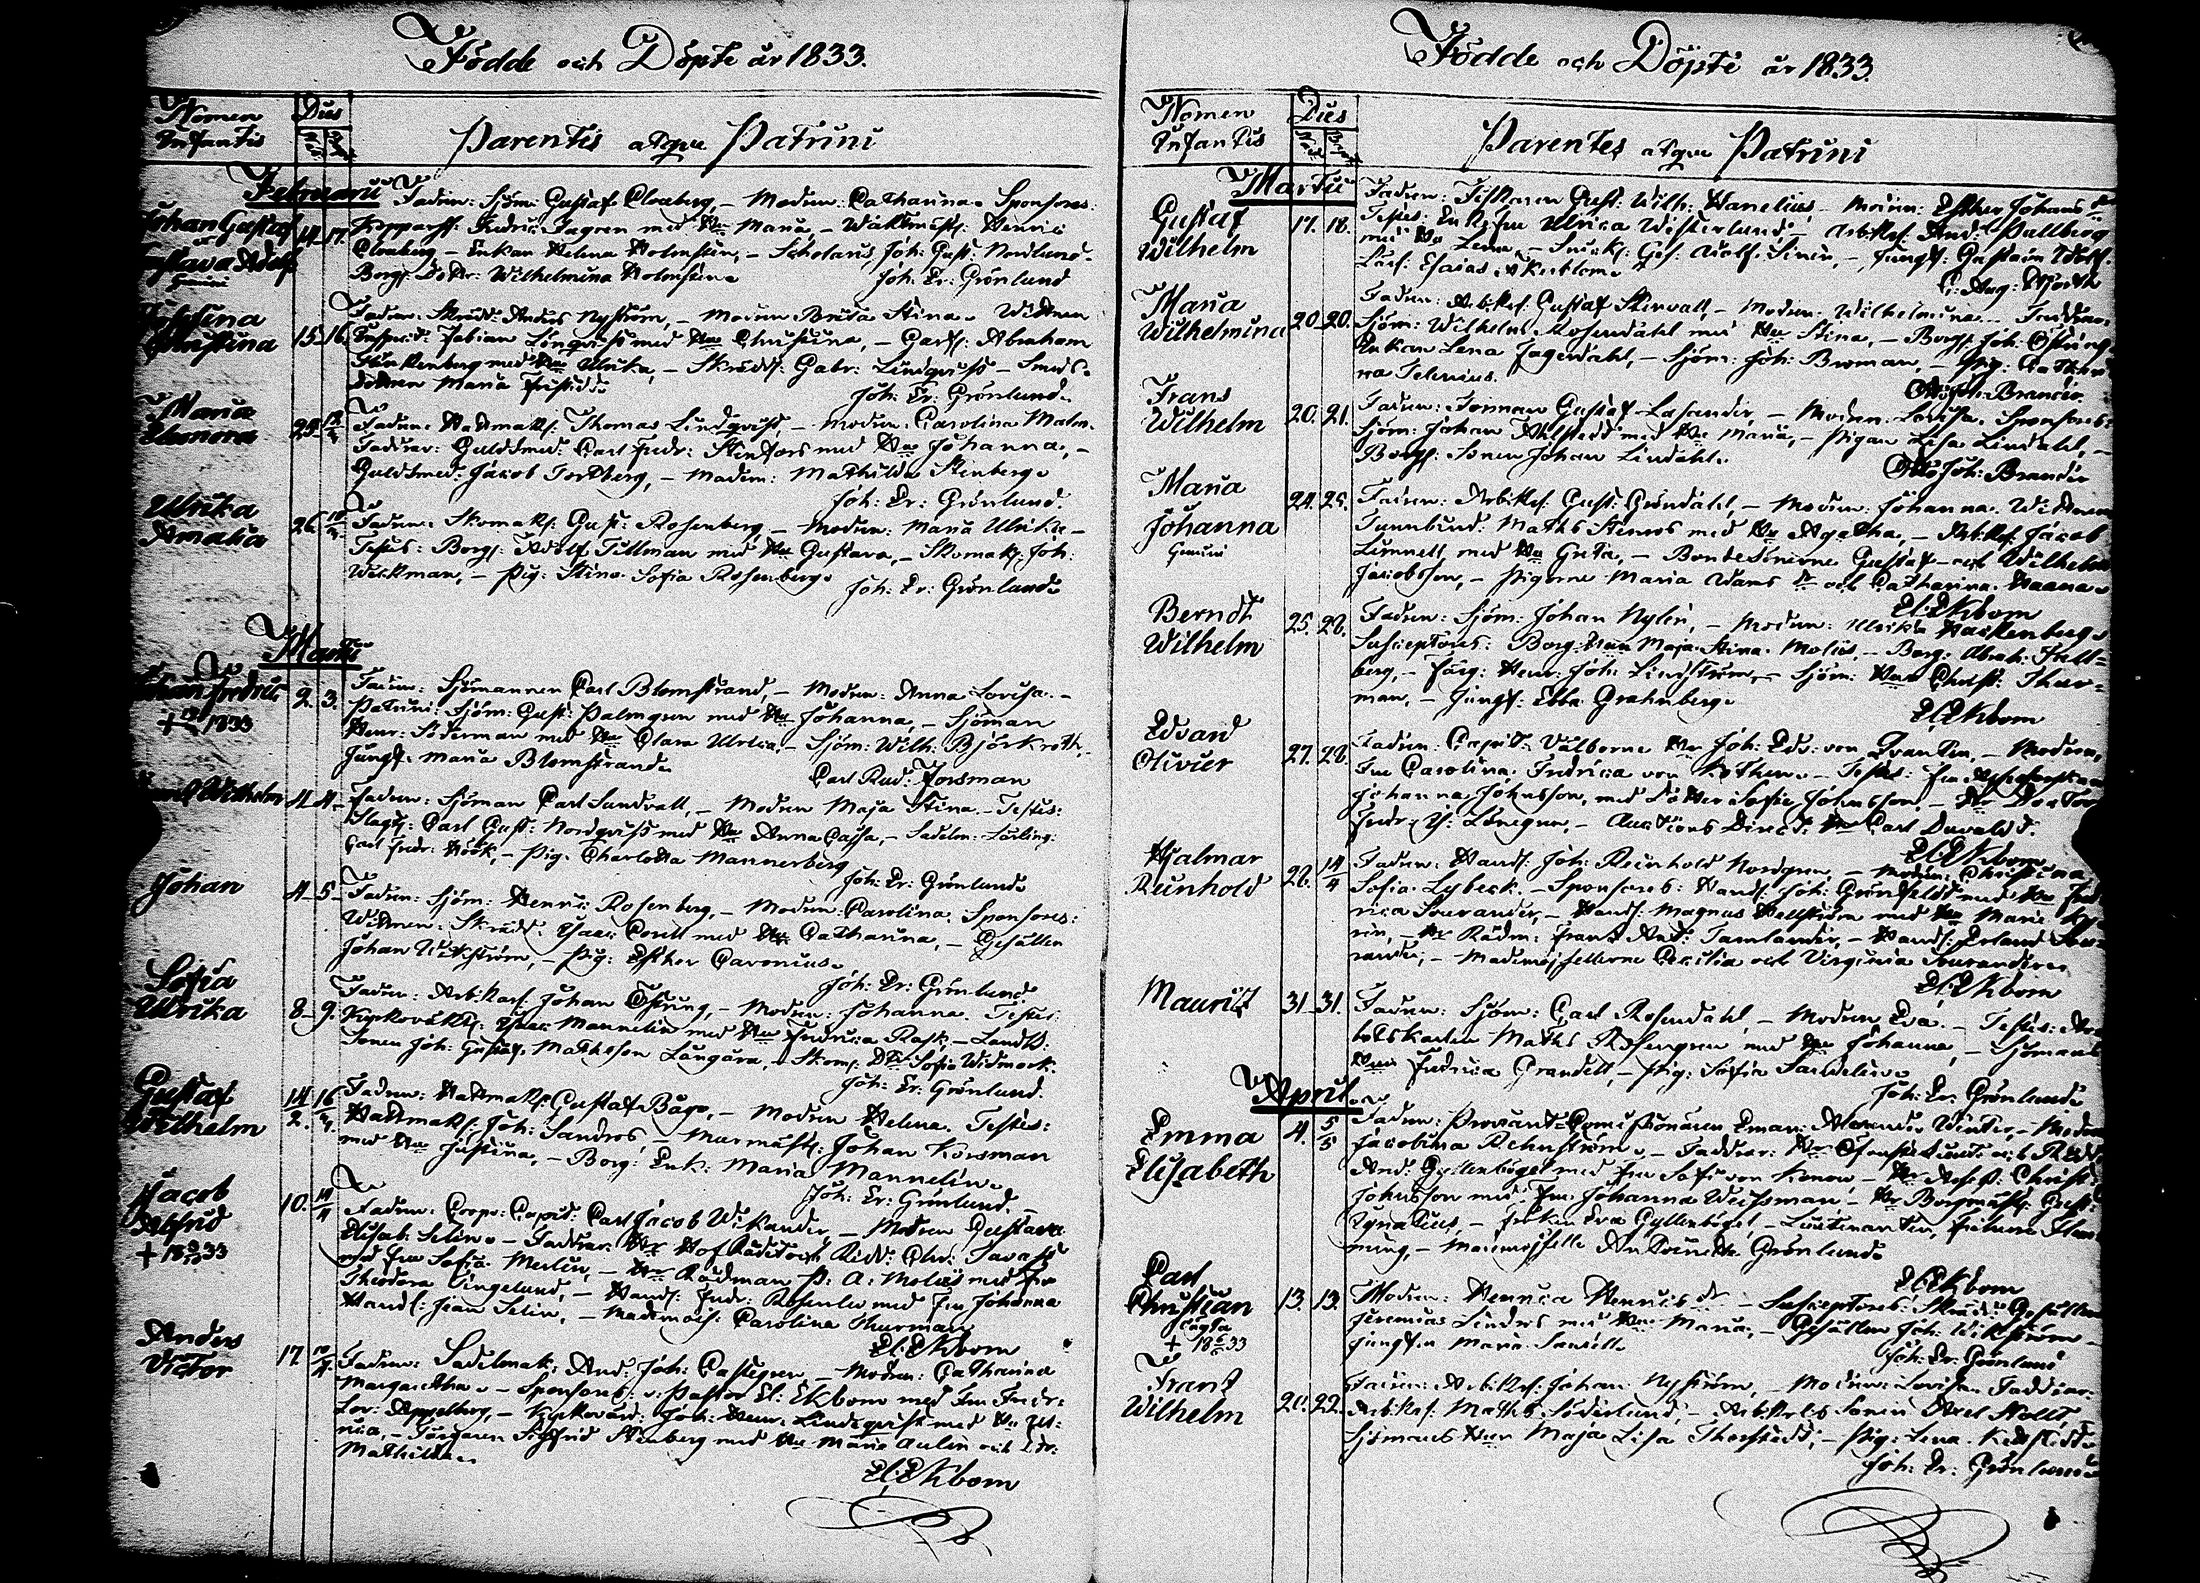 Födde och Döpte år 1833.
Nomen Infantis
Dies
Parentes atque Patrini
Februarii
Johan Gustaf
et
Gustava Adolf
Gemini
14 17.
Fadren: Sjöm: Gustaf Cloeberg, – Modren: Catharina. Sponsores:
Kopparsl: Fredric Fagren med Hu Maria, – Waktmäst: Henric
Cloeberg – Enkan Helena Holmsten, – Scholaris Joh: Gust: Nordlund –
Borg: Dottr: Wilhelmina Holmsten.
Joh: Er: Grönlund
Christina
15 16.
Fadren: Skrädd: Anders Nyström, – Modren Brita Stina. Wittnen
Fabian Lönqvist med Hu Christina, – Garf: Abraham
med Hu Ulrika, – Skrädd: Gabr: Lindqvist – Smeds
Dottren Maria
Joh: Er: Grönlund.
Maria
Eleonora
Fadren: Hattmak: Thomas Lindqvist – Modren: Carolina Malm.
Faddrar: Guldsmed: Carl Fredr: Stenfors med Hu Johanna, –
Guldsmed: Jacob Tortberg, – Madem: Mathilda Stenberg.
Joh: Er: Grönlund.
Ulrika
Amalia
26.
Fadren: Skomak: Gust: Rosenberg, – Modren: Maria Ulrika –
Testes: Borg: Adolf Tillman med Hu Gustava, – Skomak: Joh:
Wickman, – Pig: Stina Sofia Rosenberg.
Joh: Er: Grönlund.
Martii
Johan Fredric
1833
2. 3.
Fadren: Sjömannen Carl Blomstrand, – Modren: Anna Lovisa. –
Patrini: Sjöm: Gust: Palmgren med Hu Johanna, – Sjöman
Henr: Söderman med Hu Clara Ulrica, – Sjöm: Wilh: Björkroth,
Jungf: Maria Blomstrand.
Carl Rud: Forsman
Wilhelm
4 4
Fadren: Sjöman Carl Sundvall, – Modren Maja Stina. – Testes:
Slagt: Carl Gust: Nordqvist med Hu Anna Cajsa, – Sadelm: Lärling:
Carl Fredr: Höök, – Pig: Charlotta Mannerberg
Joh: Er: Grönlund.
Johan
4 5
Fadren: Sjöm: Henric Rosenberg, – Modren: Carolina. Sponsores:
Wittnen: Skrädd: Isaac Corell med Hu Catharina, – Gesällen
Johan Wikström, – Pig: Esther Caronius.
Joh: Er: Grönlund.
Sofia
Ulrika
8 9.
Fadren: Arb:Karl: Johan Östring, – Modren: Johanna. Testes:
Kyrkovakt: Isaac Mannelin med Hu Fredrica Rask, – Landtb:
Sonen Joh: Gustaf Mathsson Långåra, – Skom: Dtr Sofia Widmark.
Joh: Er: Grönlund.
Gustaf
Wilhelm
Fadren: Hattmak: Gustaf Båge, – Modren Helena. Testes:
Hattmak: Joh: Sandros – Murmäst: Johan Korsman
med Hu Justina, – Borg: Enk: Maria Mannelin.
Joh: Er: Grönlund.
Jacob
Betfrid
10.
Fadren: Corps: Copid: Carl Jacob Wikander, – Modren Gustava
Elisab: Selin. – Faddrar: Hr Hof Rådet och Ridd: Chr: Savass
med Fru Sofia Merlin, – Hr Rådman P: A: Molis med Fru
Theodora Ungelund, – Handl: Fredr: Rosenlew med Fru Johanna
Handl: Jean Selin, – Mademois: Carolina Thurman
El: Ekbom
Anders
Victor
17
Fadren: Sadelmak: And: Joh: Castegren, – Modren: Catharina
Margaretha. – Sponsores: v: Pastor El: Ekbom med Fru Fredr:
Lov: Appelberg, – Kyrkovärd: Joh: Henr: Lindeqvist med Hu Ul-
rica, – Färgaren Sigfrid Stenberg med Hu Maria Aulin och Dtr
Mathilda.
El: Ekbom
Födde och Döpte år 1833.
Nomen Infantis
Dies
Parentes atque Patrini
Martii
Gustaf
Wilhelm
17. 18.
Fadren: Fiskaren Gust: Wilh: Wanelius, – Modren: Esther Johans dr
Testes: Enkefru Ulrica Westerlund – Arb:Karl: And: Pallberg
med Hu Lena, – Snick: Ges: Adolf Siren, –
Lärl: Esaias Ekeblom.
C: Aug: Hjorth
Maria
Wilhelmina
20. 20.
Fadren: Arb:Karl: Gustaf Stenvall, – Modren: Wilhelmina. – Faddrar:
Sjöm: Wilhelms Rosendahl med Hu Stina, – Borg: Joh: Östring
Enkan Lena Fagerdahl, – Sjöm: Joh: Broman, – Pig: Catha-
rina Selenius.
Otto Joh: Brander
Frans
Wilhelm
20. 21.
Fadren: Timman Gustaf Lasander, – Modren: Lovisa. Sponsores:
Sjöm: Johan Ahlstedt med Hu Maria, – Pigan Lisa Lindahl, –
Borg: Sonen Johan Lindahl.
Otto Joh: Brander
Maria
Johanna
Gemini
24. 25.
Fadren: Arb:Karl: Gust: Gröndahl, – Modren: Johanna. Wittnen
Tunnbind: Maths Stenros med Hu Agatha, – Arb:Karl: Jacob
Limnell med Hu Greta, – Bonde Sönerne Gustaf och Wilhelm
Jacobsson, – Pigorne Maria Adams dr och Catharina Haana.
El: Ekbom
Berndt
Wilhelm
25. 28.
Fadren: Sjöm: Johan Nylin, – Modren: Ulrika Hackenberg.
Susceptores: Borg: Hun Maja Stina Molis, – Borg: Abrah: Hell-
berg, – Färg: Henr: Joh: Lindström, – Sjöm: Hun Christ: Thur-
man, – Jungf: Ebba Grahnberg.
El: Ekbom
Edvard
Olivier
27. 28.
Fadren: Capit: Välborne Hr Joh: Edv: von Qvanten, – Modren,
Fru Carolina Fredrica von Kothen. – Testes: Fru
Johanna Johnsson, med Dotter Sofie Johnsson, – Hr Doctor
Fredr: J: Lönegren, – Auctions Direct: Hr Carl Duvaldt.
El: Ekbom
Hjalmar
Reinhold
28. 14/4
Fadren: Handl: Joh: Reinhold Nordgren, – Modren: Christina
Sofia Lybeck. – Sponsores: Handl: Joh: Grönfeldt med Hu Fred-
rica Sourander, – Handl: Magnus Hellström med Hu Maria Ky-
rén, – Hr Rådm: Frans And: Tamlander, – Handl: Erland Sou-
rander, – Mademoisellerne Cecilia och Virginia Sourander.
El: Ekbom
Mauritz
31 31.
Fadren: Sjöm: Carl Rosendahl, – Modren Eva. – Testes: Ar-
betskarlen Maths Rosengren med Hu Johanna, – Sjömans
Hun Fredrica Grandell, – Pig: Sofia Sandelin.
Joh: Er: Grönlund.
April
Emma
Elisabeth
4. 5/5
Fadren: Proviant-Commissionären Eman: Alexander Winter, – Modren
Jacobina Rehnström. – Faddrar: Hr Öfverste Lieut: och Ridd:
And: Gyllenbögel med Fru Sofi von Konow – Hr Assess: Christ:
Johnsson med Fru Johanna Weissman, – Hr Borgmäst: Gust:
Ignatius, – Fröken Eva Gyllenbögel, – Lieutenanten, Friherre Flem-
ming, – Mademoiselle Antoinette Grönlund.
El: Ekbom
Carl
Christian
oägta
13. 13.
Modren: Henrica Henrics dr – Susceptores: Skrädd: Gesällen
Jeremias Lindros med Hu Maria, – Gesällen Joh: Wikström –
Jungfrun Maria Savell.
Joh: Er: Grönlund
Frans
Wilhelm
20. 22.
Fadren: Arb:Karl: Johan Nyström, – Modren: Lovisa. Faddrar:
Arb:Karl: Maths Söderlund, – Arb:Karls Sonen Axel Nolls,
Sjömans Hun Maja Lisa Thorstedt, – Pig: Lena Kellstedt.
Joh: Er: Grönlund